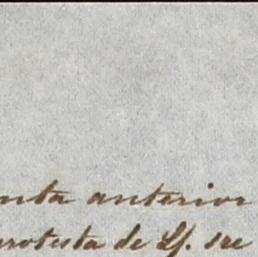 nta anterior
protesta de Sf. sre